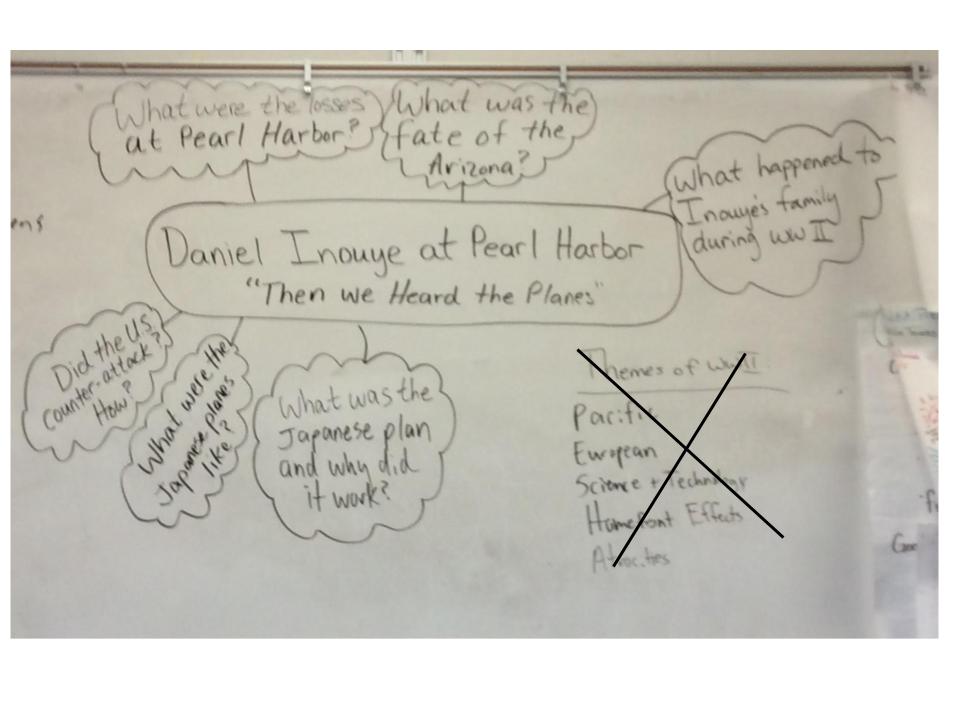 What were the losses
at Pearl Harbor?
What was the
fate of the
Arizona?
What happened to
Inouye's family
during WWII
ens
Daniel Inouye at Pearl Harbor
"Then we Heard the Planes"
Did the U.S.
counter-attack?
How?
What were the
Japanese planes
like?
What was the
Japanese plan
and why did
it work?
Themes of WWII
Pacific
European
Science + Technology
Homefront Effects
Atrocities